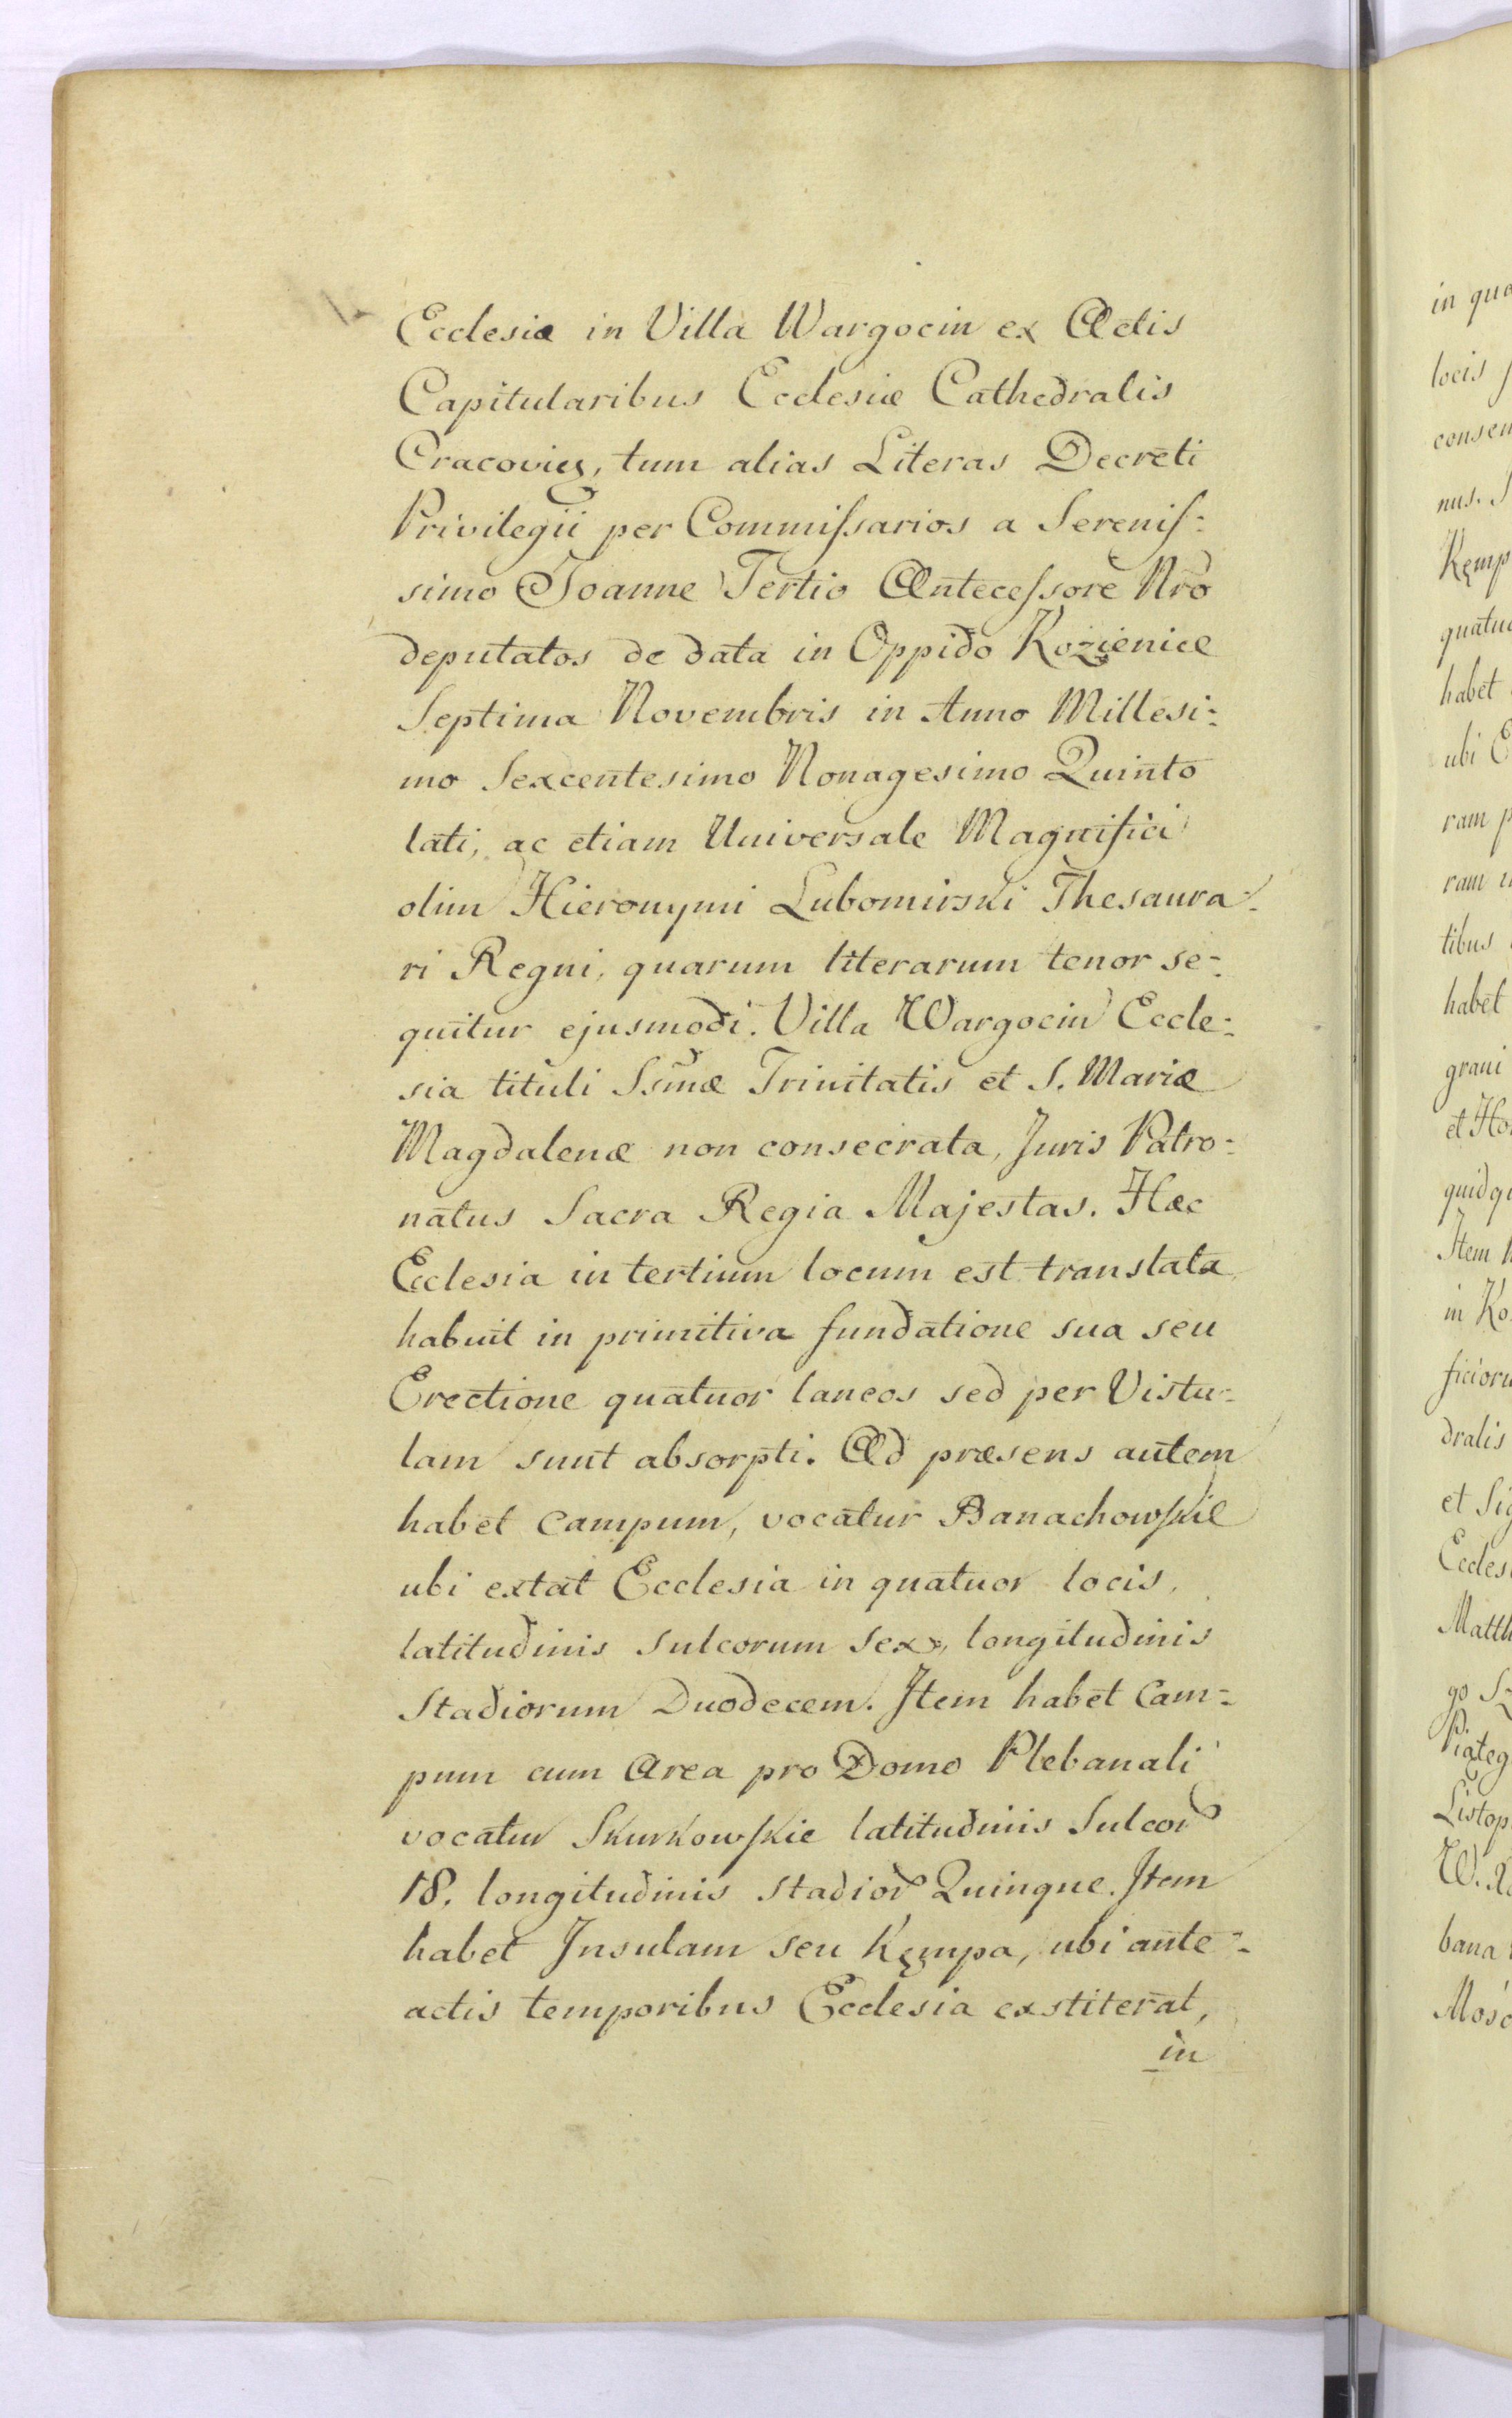 Ecclesiæ in Villa Wargocin ex Actis
Capitularibus Ecclesiæ Cathedralis
Cracovien, tum alias Literas Decreti
Privilegii per Commiſsarios a Sereniſ-
simo Joanne Tertio Anteceſsore Nro
deputatos de data in Oppido Kozienice
Septima Novembris in Anno Millesi-
mo Sexcentesimo Nonagesimo Quinto
lati, ac etiam Universale Magnifici
olim Hieronymi Lubomirski Thesaura-
ri Regni, quarum literarum tenor se-
quitur ejusmodi. Villa Wargocin Eccle-
sia tituli Ssmæ Trinitatis et S. Mariæ
Magdalenæ non consecrata, Juris Patro-
natus Sacra Regia Majestas. Hæc
Ecclesia in tertium locum est translata
habuit in primitiva fundatione sua seu
Erectione quatuor laneos sed per Vistu-
lam sunt absorpti. Ad præsens autem
habet campum, vocatur Banachowſkie
ubi extat Ecclesia in quatuor locis,
latitudinis sulcorum sex, longitudinis
Stadiorum Duodecem. Item habet Cam-
pum cum Area pro Domo Plebanali
vocatur Skurkowſkie latitudinis Sulcor
18. longitudinis stadior Quinque. Item
habet Insulam seu Kęmpa, ubi ante-
actis temporibus Ecclesia exstiterat,
in
in quo
locis
consen
nus. S
Kęmp
quatuo
habet
ubi E
ram p
ram
tibus
habet
grani
et Ho
quidqu
Item h
in Ko
ficioru
dralis
et Sig
Eccles
Matth
go S
Piąteg
Listop
W. X
bana
Mość